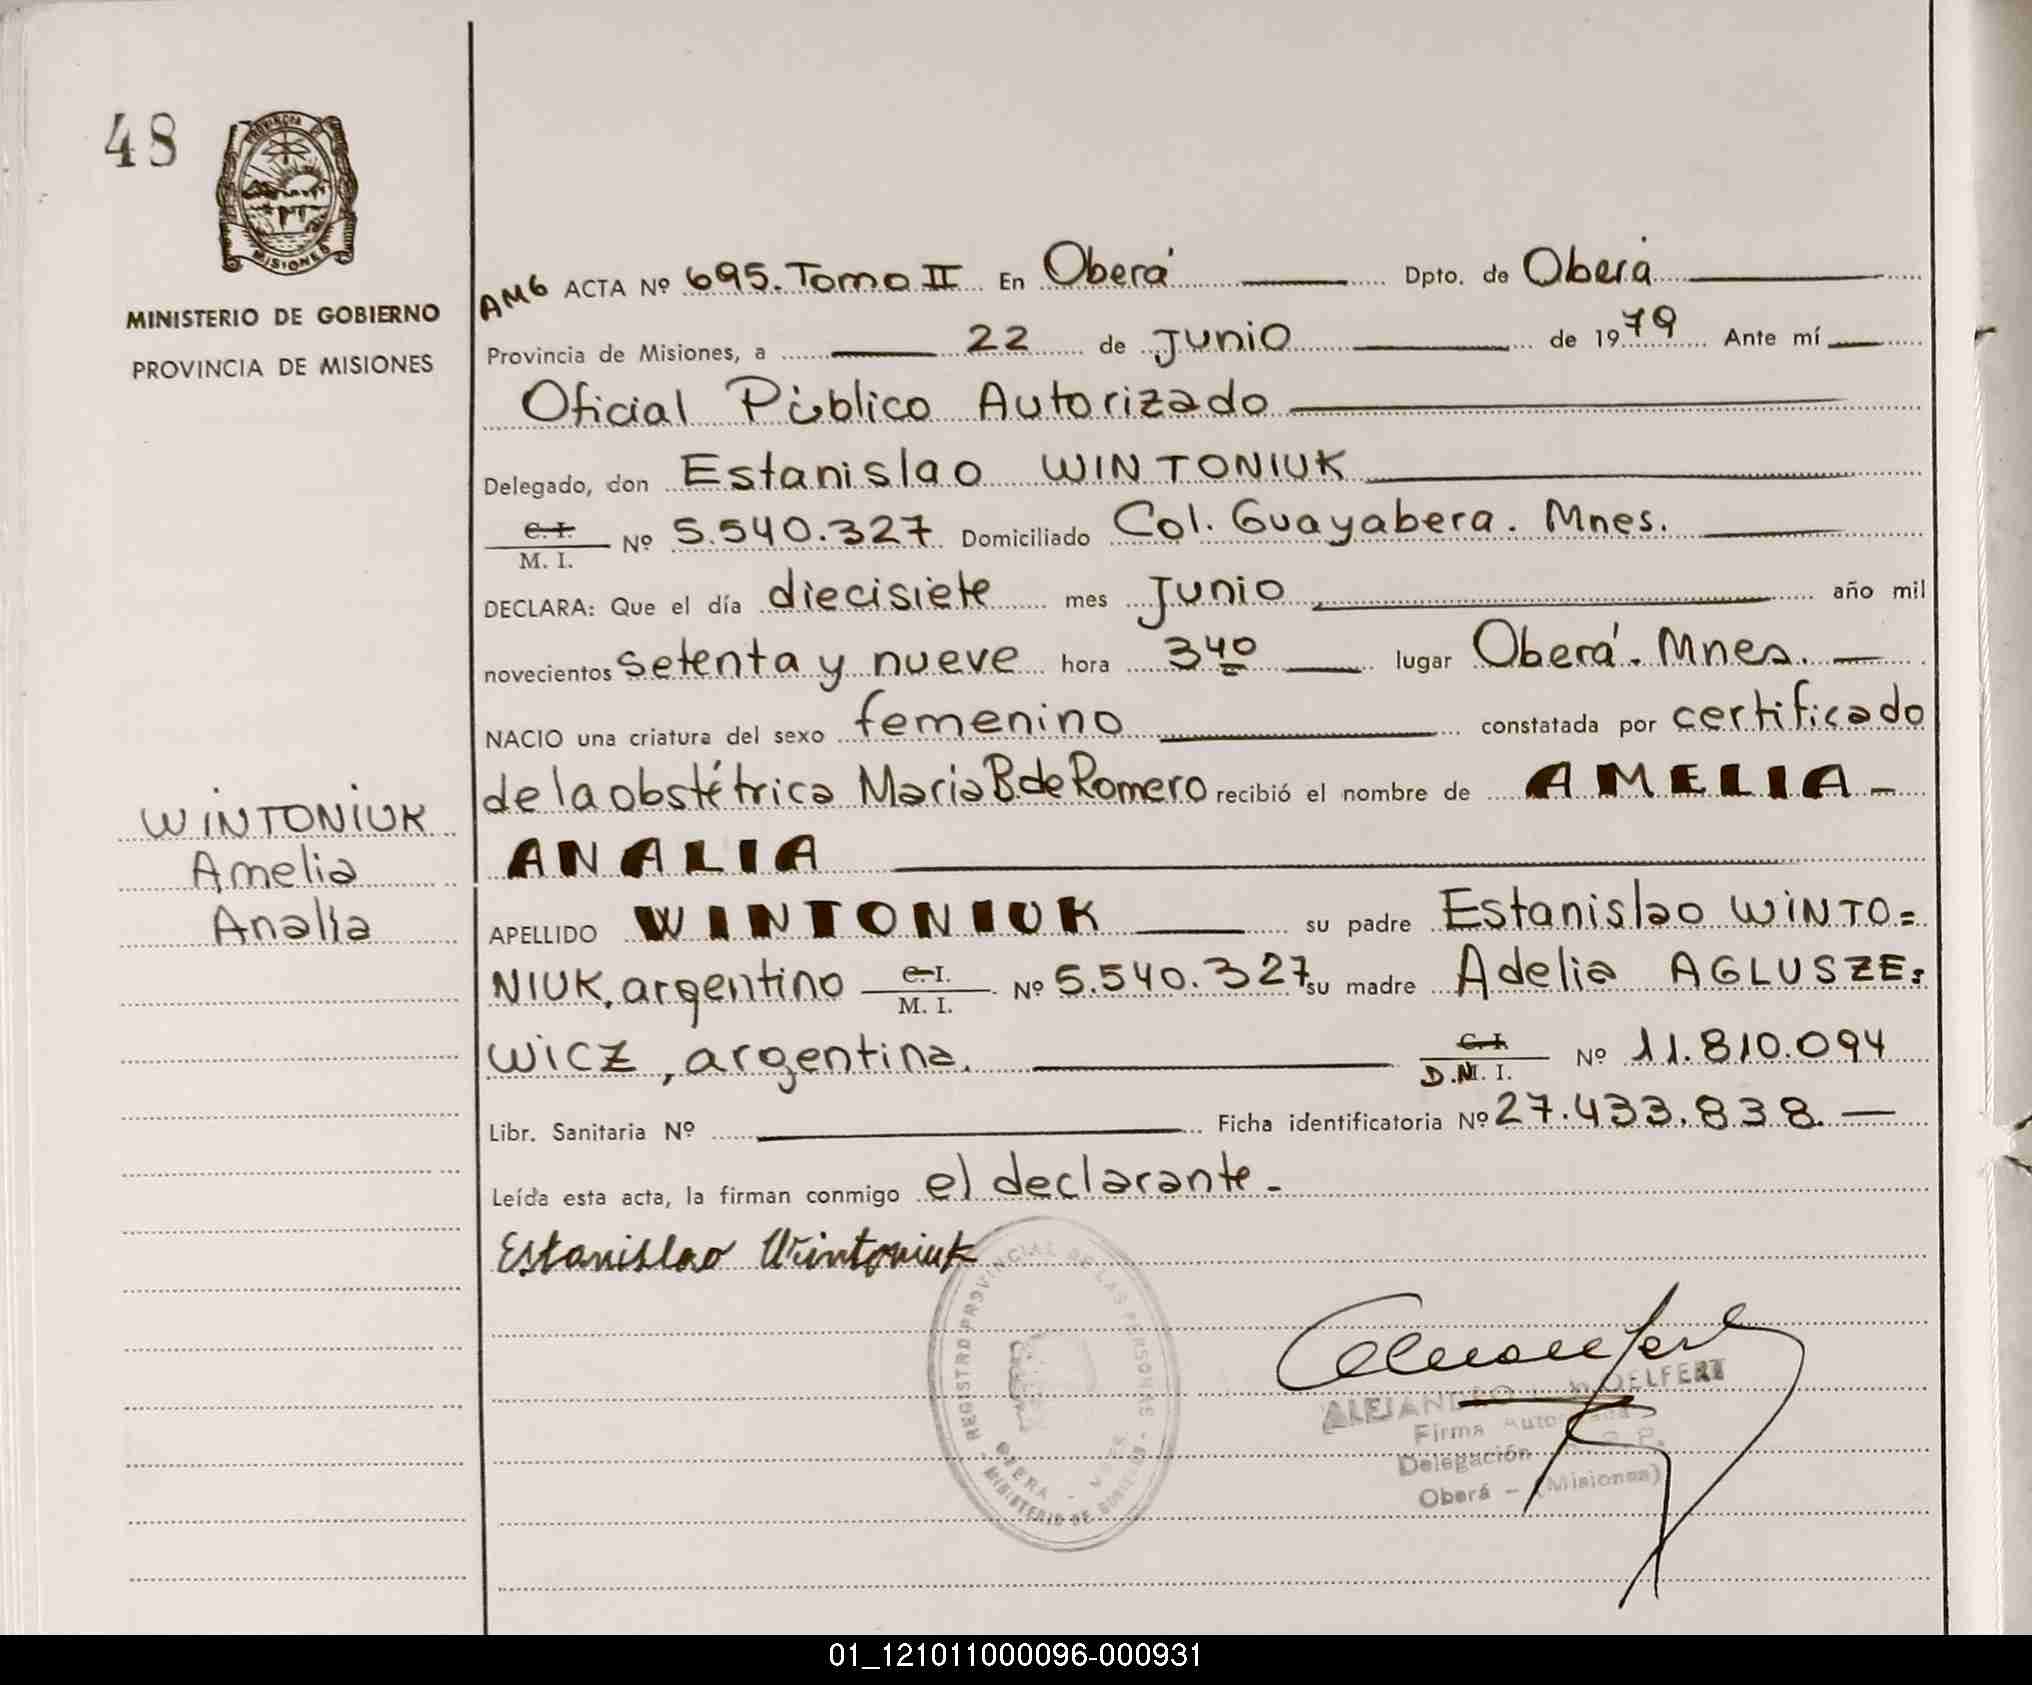 48
PROVINCIA DE
MISIONES
MINISTERIO DE GOBIERNO
PROVINCIA DE MISIONES
AMG ACTA Nº 695. Tomo II En Oberá Dpto. de Oberá
Provincia de Misiones, a 22 de Junio de 1979 Ante mí
Oficial Público Autorizado
Delegado, don Estanislao WINTONIUK
C. I.
M. I. Nº 5.540.327 Domiciliado Col. Guayabera. Mnes.
DECLARA: Que el día diecisiete mes Junio año mil
novecientos setenta y nueve hora 3 40 lugar Oberá. Mnes.
NACIO una criatura del sexo femenino constatada por certificado
de la obstétrica Maria B de Romero recibió el nombre de AMELIA
ANALIA
WINTONIUK
Amelia
Analia
APELLIDO WINTONIUK su padre Estanislao WINTO=
NIUK, argentino C. I. M. I. Nº 5.540.327 su madre Adelia AGLUSZE=
WICZ, argentina. C. I. D.N. I. Nº 11.810.094
Libr. Sanitaria Nº Ficha identificatoria Nº 27.433.838.
Leída esta acta, la firman conmigo el declarante.-
Estanislao Wintoniuk
REGISTRO PROVINCIAL DE LAS PERSONAS
OBERA -
MINISTERIO DE GOBIERNO
OELFERT
Firma
Delegación
Oberá - (Misiones)
01_121011000096-000931